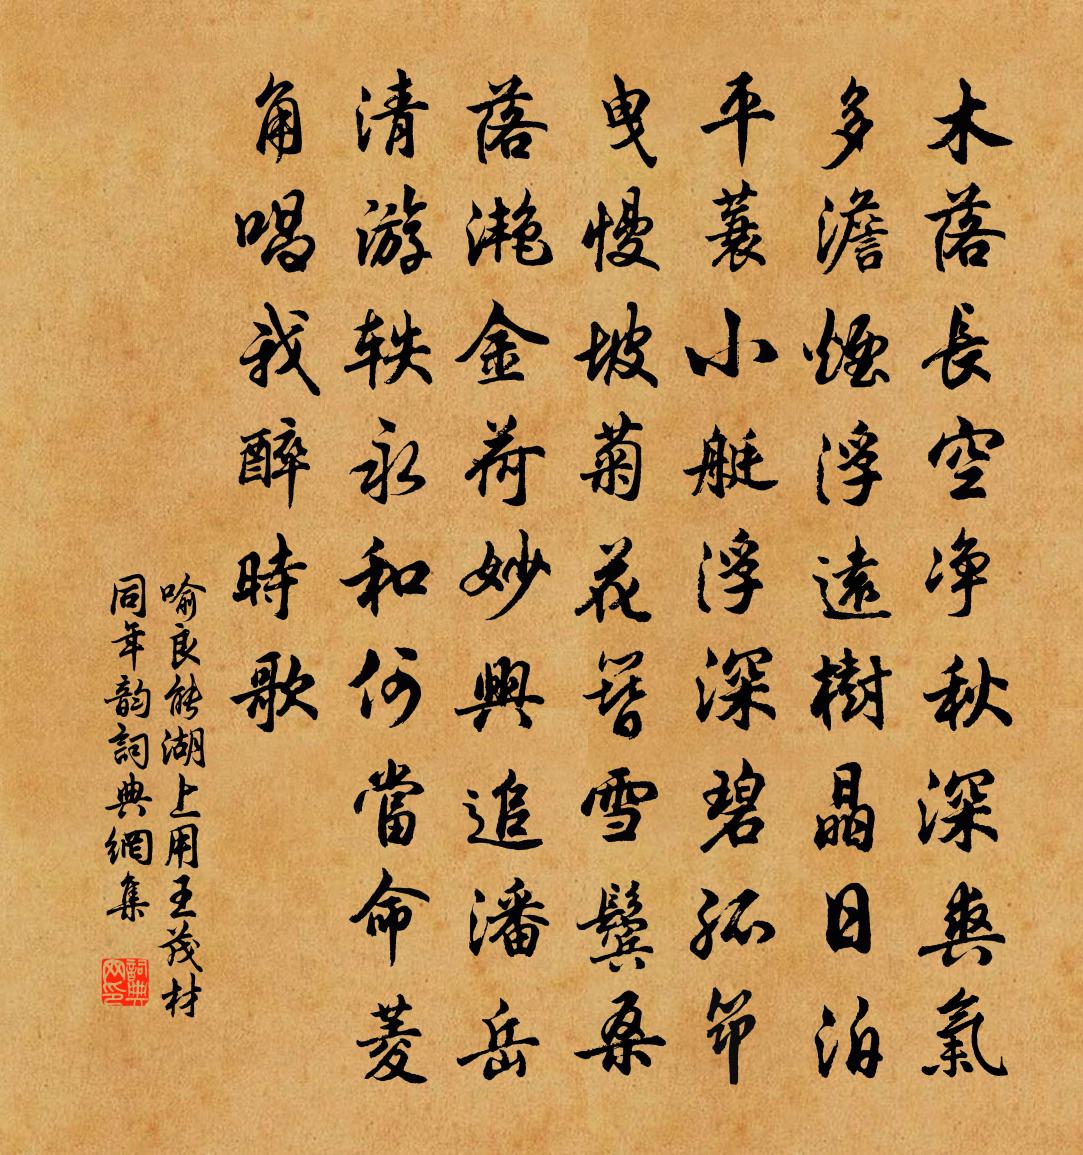 木落長空净秋深爽氣
多澹煙浮遠樹晶日泊
平蓑小艇浮深碧孤筇
曳慢坡菊花簪雪鬢桑
落滟金荷妙興追潘岳
清游軼永和何當命菱
角唱我醉時歌
喻良能湖上用王茂材
同年韵詞典網集
詞典
网印